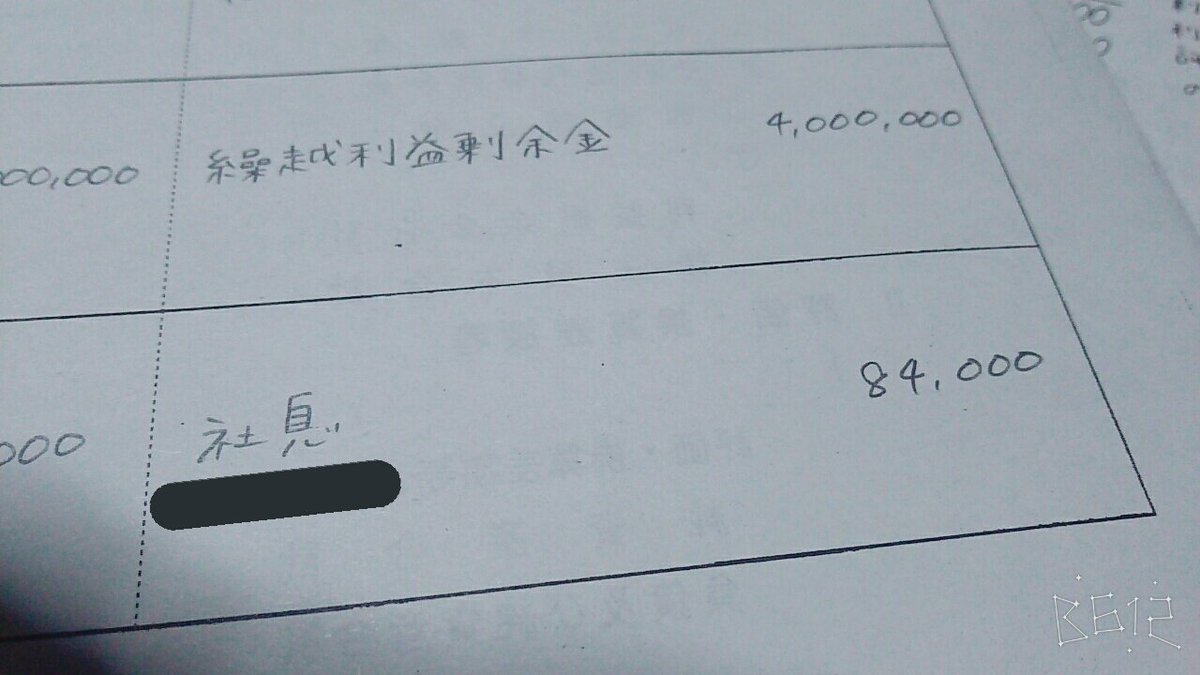 00,000 繰越利益剰余金 4,000,000
000 社息 84,000
B612